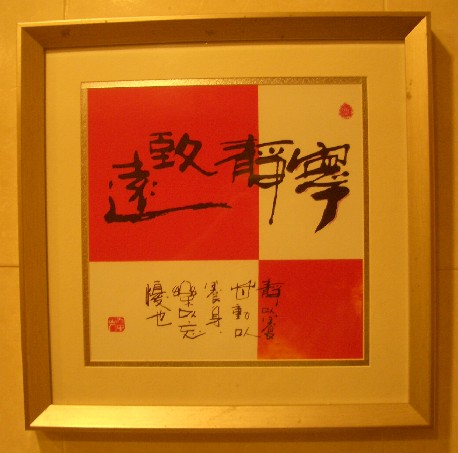 寧靜致遠
靜以養
動以
養身
樂以忘
憂也